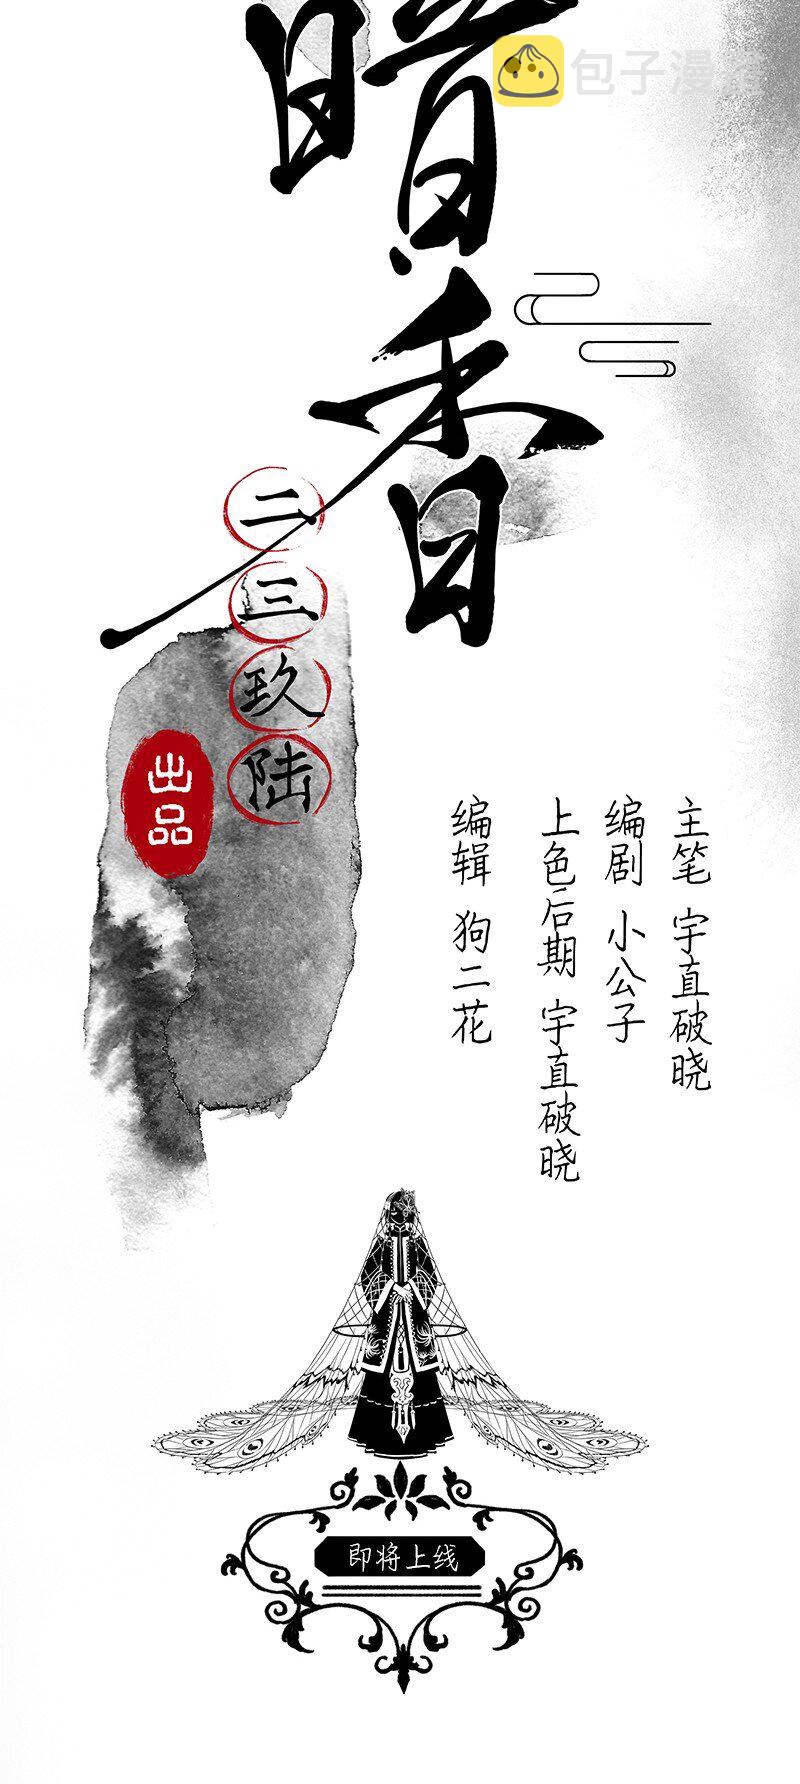 包子漫画
暗香
二三玖陆
出品
主笔 宇直破晓
编剧 小公子
上色后期 宇直破晓
编辑 狗二花
即将上线